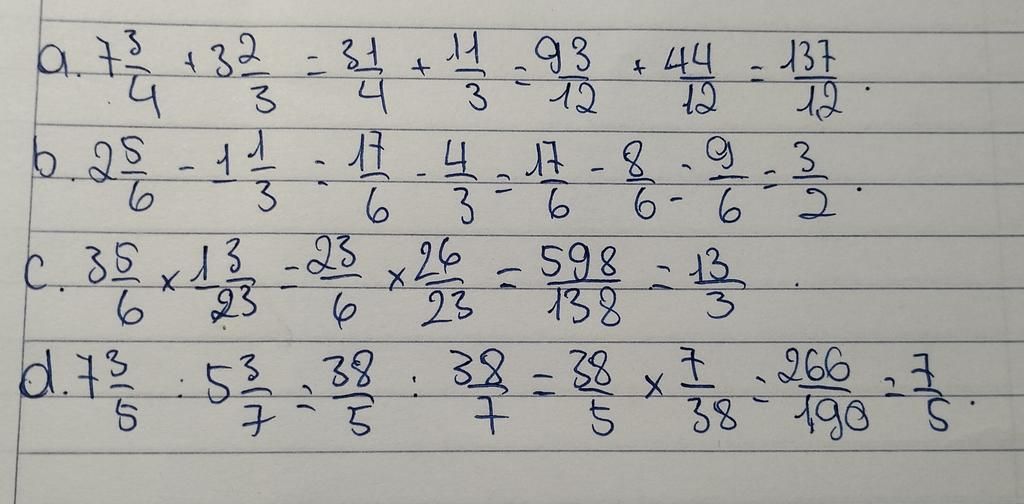 a. 7 3/4 + 3 2/3 = 31/4 + 11/3 = 93/12 + 44/12 = 137/12.
b. 2 5/6 - 1 1/3 = 17/6 - 4/3 = 17/6 - 8/6 = 9/6 = 3/2.
c. 3 5/6 × 1 3/23 = 23/6 × 26/23 = 598/138 = 13/3.
d. 7 3/5 : 5 3/7 = 38/5 : 38/7 = 38/5 × 7/38 = 266/190 = 7/5.